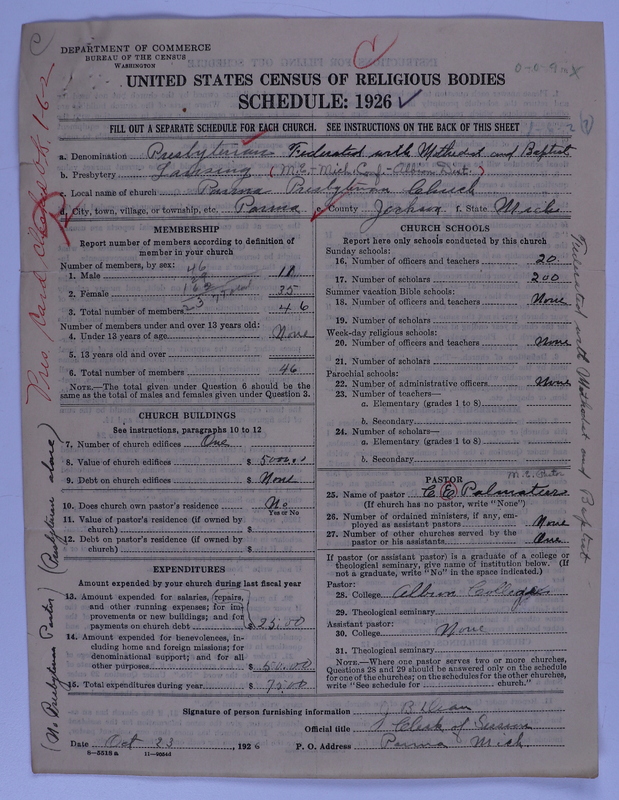 DEPARTMENT OF COMMERCE
BUREAU OF THE CENSUS
WASHINGTON
UNITED STATES CENSUS OF RELIGIOUS BODIES
SCHEDULE: 1926
FILL OUT A SEPARATE SCHEDULE FOR EACH CHURCH. SEE INSTRUCTIONS ON THE BACK OF THIS SHEET
a. Denomination Presbyterian Federated with Methodist and Baptist
b. Presbytery Lansing (M.E.-Mich Conf.-Albion Dist.)
c. Local name of church Parma Presbyterian Church
d. City, town, village, or township, etc. Parma e. County Jackson f. State Mich
MEMBERSHIP
Report number of members according to definition of member in your church
Number of members, by sex:
1. Male 11
2. Female 35
3. Total number of members 46
Number of members under and over 13 years old:
4. Under 13 years of age None
5. 13 years old and over
6. Total number of members 46
NOTE.—The total given under Question 6 should be the same as the total of males and females given under Question 3.
CHURCH BUILDINGS
See instructions, paragraphs 10 to 12
7. Number of church edifices One
8. Value of church edifices $ 5000.00
9. Debt on church edifices $ None
10. Does church own pastor's residence? No
Yes or No
11. Value of pastor's residence (if owned by church) $
12. Debt on pastor's residence (if owned by church) $
EXPENDITURES
Amount expended by your church during last fiscal year
13. Amount expended for salaries, repairs, and other running expenses; for improvements or new buildings; and for payments on church debt $ 25.00
14. Amount expended for benevolences, including home and foreign missions; for denominational support; and for all other purposes $ 50.00
15. Total expenditures during year $ 75.00
CHURCH SCHOOLS
Report here only schools conducted by this church
Sunday schools:
16. Number of officers and teachers 20
17. Number of scholars 200
Summer vacation Bible schools:
18. Number of officers and teachers None
19. Number of scholars
Week-day religious schools:
20. Number of officers and teachers None
21. Number of scholars
Parochial schools:
22. Number of administrative officers None
23. Number of teachers—
a. Elementary (grades 1 to 8)
b. Secondary
24. Number of scholars—
a. Elementary (grades 1 to 8)
b. Secondary
PASTOR
M.E. Pastor
25. Name of pastor C E Palmateer
(If church has no pastor, write "None")
26. Number of ordained ministers, if any, employed as assistant pastors None
27. Number of other churches served by the pastor or his assistants One
If pastor (or assistant pastor) is a graduate of a college or theological seminary, give name of institution below. (If not a graduate, write "No" in the space indicated.)
Pastor:
28. College Albion College
29. Theological seminary
Assistant pastor:
30. College None
31. Theological seminary
NOTE.—Where one pastor serves two or more churches, Questions 28 and 29 should be answered only on the schedule for one of the churches; on the schedules for the other churches, write "See schedule for church."
Signature of person furnishing information
Official title Clerk of Session
Date Oct 23, 1926 P. O. Address Parma Mich
8—5518a
Federated with Methodist and Baptist
(No Presbyterian Pastor) (Presbyterian alone)